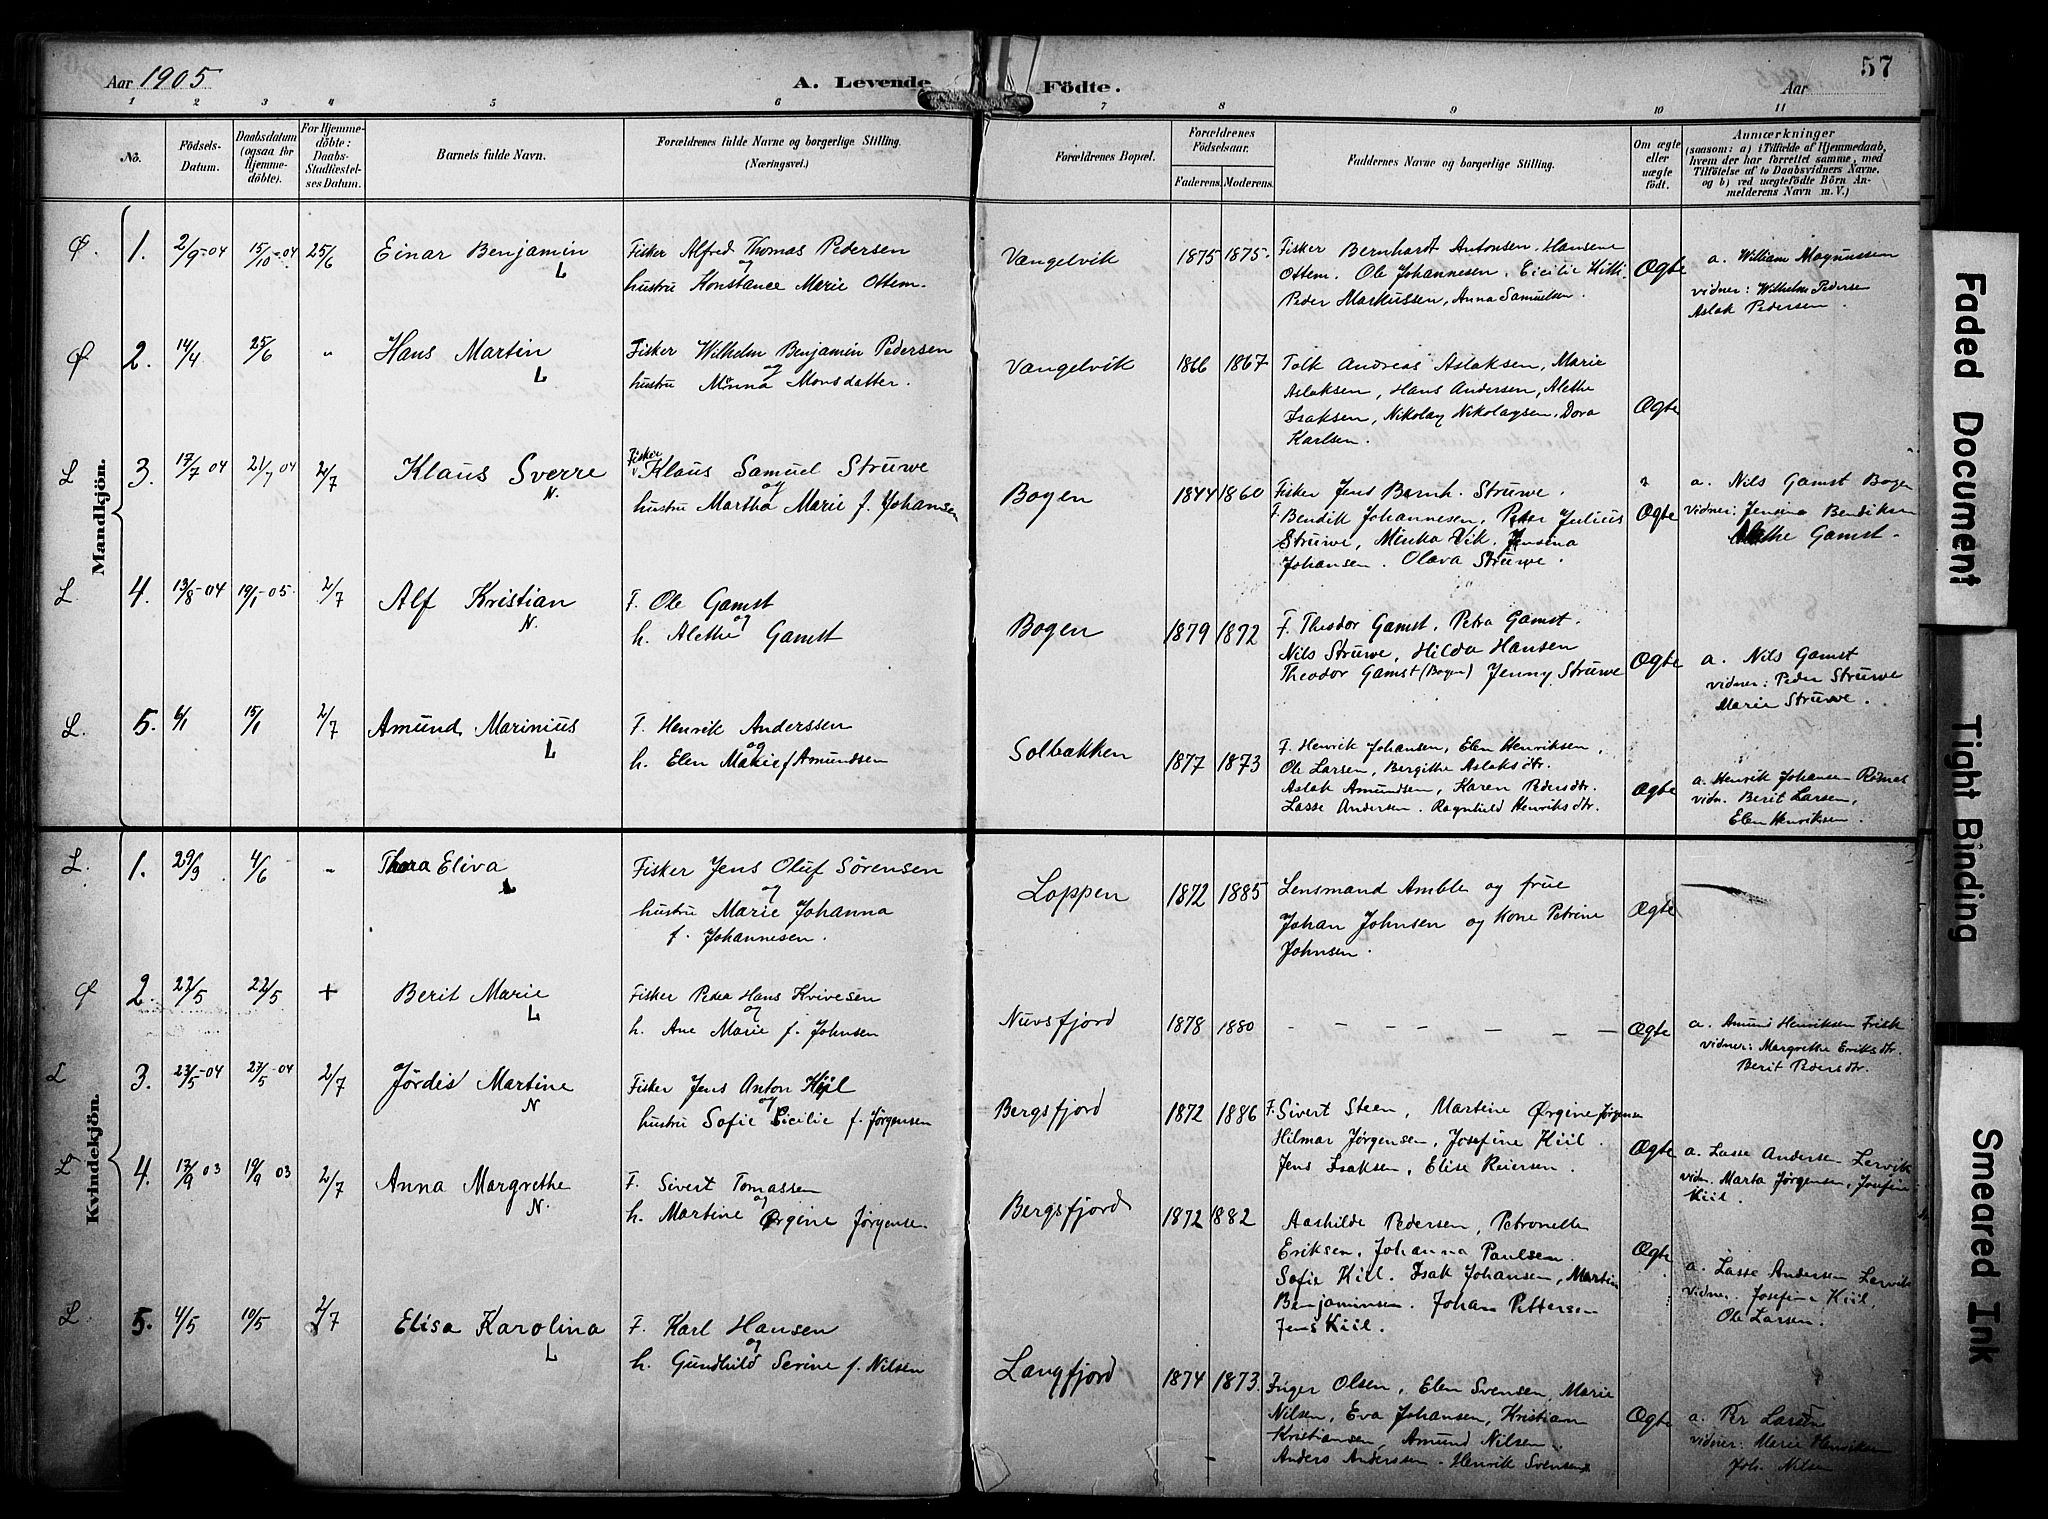 Aar 1905
A. Levende
Födte.
Aar
57
1 2 3 4 5 6 7 8 9 10 11
No.
Födsels-
Datum.
Daabsdatum
(ogsaa for
Hjemme-
döbte).
For Hjemme-
döbte:
Daabs-
Stadfæstel-
ses Datum.
Barnets fulde Navn.
Forældrenes fulde Navne og borgerlige Stilling.
(Næringsvei.)
Forældrenes Bopæl.
Forældrenes
Födselsaar.
Faderens. Moderens.
Faddernes Navne og borgerlige Stilling.
Om ægte
eller
uægte
födt.
Anmærkninger
(saasom: a) i Tilfælde af Hjemmedaab,
hvem der har forrettet samme, med
Tilföielse af to Daabsvidners Navne,
og b) ved uægtefödte Börn An-
melderens Navn m. V.)
Mandkjön.
Ø. 1. 2/9-04 15/10-04 25/6 Einar Benjamin L
Fisker Alfred Thomas Pedersen
og
hustru Konstance Marie Ottem.
Vangelvik 1875 1875.
Fisker Bernhardt Antonsen. Hansene
Ottem. Ole Johannesen. Cicilie
Peder Markussen, Anna Samuelsen.
Ægte
a. William Magnussen
vidner: Wilhelm Pedersen
Aslak Pedersen.
Ø 2. 14/4 25/6 " Hans Martin L
Fisker Wilhelm Benjamin Pedersen
og
hustru Minna Monsdatter.
Vangelvik 1866 1867
Tolk Andreas Aslaksen, Marie
Aslaksen, Hans Andersen, Alethe
Isaksen, Nikolay Nikolaysen, Dora
Karlsen.
Ægte
L 3. 17/7 04 21/7 04 2/7 Klaus Sverre N.
Fisker
Klaus Samuel Struwe
og
hustru Martha Marie f. Johansen
Bogen 1844 1860
Fisker Jens Bernh. Struwe.
F. Bendik Johannesen, Peter Julius
Struwe, Minka Vik. Jensina
Johansen. Olava Struwe.
Ægte
a. Nils Gamst Bogen
vidner: Jensina Bendiksen
Alethe Gamst.
L 4. 13/8-04 19/1-05. 2/7 Alf Kristian N.
F. Ole Gamst
og
h. Alethe Gamst
Bogen 1879 1872
F. Theodor Gamst. Petra Gamst.
Nils Struwe, Hilda Hansen
Theodor Gamst (Bogen) Jenny Struwe
Ægte
a. Nils Gamst
vidner: Peder Struwe
Marie Struwe.
L. 5. 6/1 15/1 2/7 Amund Marinius L
F. Henrik Anderssen
og
h. Elen Marie f Amundsen
Solbakken 1877 1873
F. Henrik Johansen, Elen Henriksen,
Ole Larsen, Bergithe Aslaksdtr.
Aslak Amundsen, Karen Pedersdtr.
Lasse Andersen. Ragnhild Henriksdtr.
Ægte
a. Henrik Johansen
vidn. Berit Larsen,
Elen Henriksen.
Kvindekjön.
L. 1. 29/3 4/6 - Thora Eliva L
Fisker Jens Oluf Sørensen
og
hustru Marie Johanna
f. Johannesen.
Loppen 1872 1885
Lensmand Amble og frue
Johan Johnsen og Kone Petrine
Johnsen.
Ægte
Ø 2. 22/5 22/5 + Berit Marie L
Fisker Peder Hans Kvivesen
og
h. Ane Marie f. Johnsen
Nuvsfjord 1878 1880
- - - - - - - -
Ægte
a. Amund Henriksen Frisk
vidner: Margrethe Eriksdtr.
Berit Pedersdtr.
L 3. 23/5-04 27/5-04 2/7 Jördis Martine N
Fisker Jens Anton Kiil
og
hustru Sofie Cicilie f. Jørgensen
Bergsfjord 1872 1886
F. Sivert Steen, Martine Ørgine Jørgensen
Hilmar Jørgensen, Josefine Kiil.
Jens Isaksen, Elise Reiersen.
Ægte
a. Lasse Andersen Lervik
vidn. Marta Jørgensen, Josefine
Kiil.
L 4. 17/9 03 19/9 03 2/7 Anna Margrethe N.
F. Sivert Tomassen
og
h. Martine Ørgine Jørgensen
Bergsfjord 1872 1882
Aashilde Pedersen, Petronelle
Eriksen, Johanna Paulsen.
Sofie Kiil. Isak Johansen, Martin
Benjaminsen. Johan Pettersen
Jens Kiil.
Ægte
a. Lasse Andersen Lervik
vidner. Josefine Kiil,
Ole Larsen.
L. 5. 4/5 10/5 2/7 Elisa Karolina L
F. Karl Hansen
og
h. Gundhild Serine f. Nilsen
Langfjord 1874 1873.
Inger Olsen, Elen Svensen, Marie
Nilsen, Eva Johansen, Kristian
Kristiansen, Amund Nilsen.
Anders Anderssen. Henrik Svensen
Ægte
a. Per Larsen
vidner: Marie Henriksen
Joh. Nilsen
Faded Document
Tight Binding
Smeared Ink